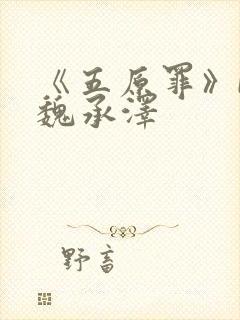 《五原罪》
魏承澤
野畜